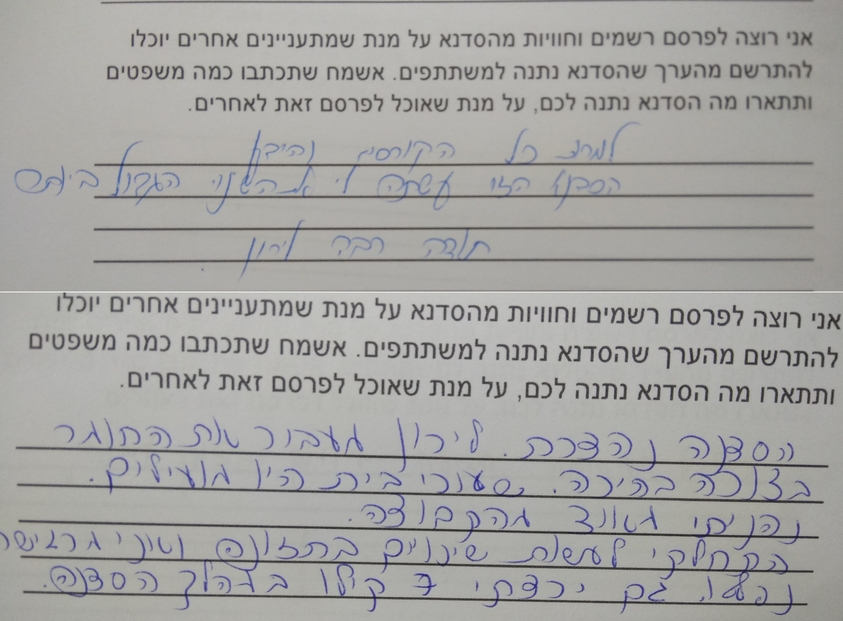 אני רוצה לפרסם רשמים וחוויות מהסדנא על מנת שמתעניינים אחרים יוכלו
להתרשם מהערך שהסדנא נתנה למשתתפים. אשמח שתכתבו כמה משפטים
ותתארו מה הסדנא נתנה לכם, על מנת שאוכל לפרסם זאת לאחרים.
למרות כל הקורסים
הסדנא הזו עשתה לי את השינוי הגדול ביותר
תודה רבה לירון
אני רוצה לפרסם רשמים וחוויות מהסדנא על מנת שמתעניינים אחרים יוכלו
להתרשם מהערך שהסדנא נתנה למשתתפים. אשמח שתכתבו כמה משפטים
ותתארו מה הסדנא נתנה לכם, על מנת שאוכל לפרסם זאת לאחרים.
הסדנה נהדרת. לירון מעביר את החומר
בצורה בהירה. שעורי בית היו מועילים.
נהניתי מאוד מהקבוצה.
התחלתי לעשות שינויים בתזונה
נפלא. גם ירדתי 7 קילו במהלך הסדנה.